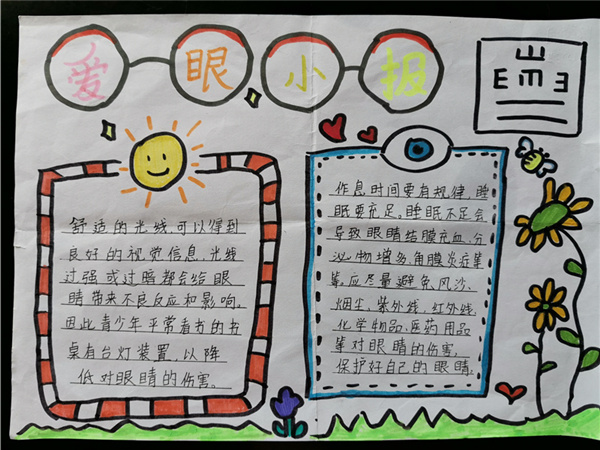 爱眼小报
E ш m E Ǝ
舒适的光线可以得到
良好的视觉信息,光线
过强或过暗都会给眼
睛带来不良反应和影响。
因此青少年平常看书的书
桌有台灯装置,以降
低对眼睛的伤害。
作息时间要有规律,睡
眠要充足。睡眠不足会
导致眼睛结膜充血、分
泌物增多角膜炎症等
等。应尽量避免、风沙、
烟尘,紫外线,红外线,
化学物品、医药用品
等对眼睛的伤害,
保护好自己的眼睛.